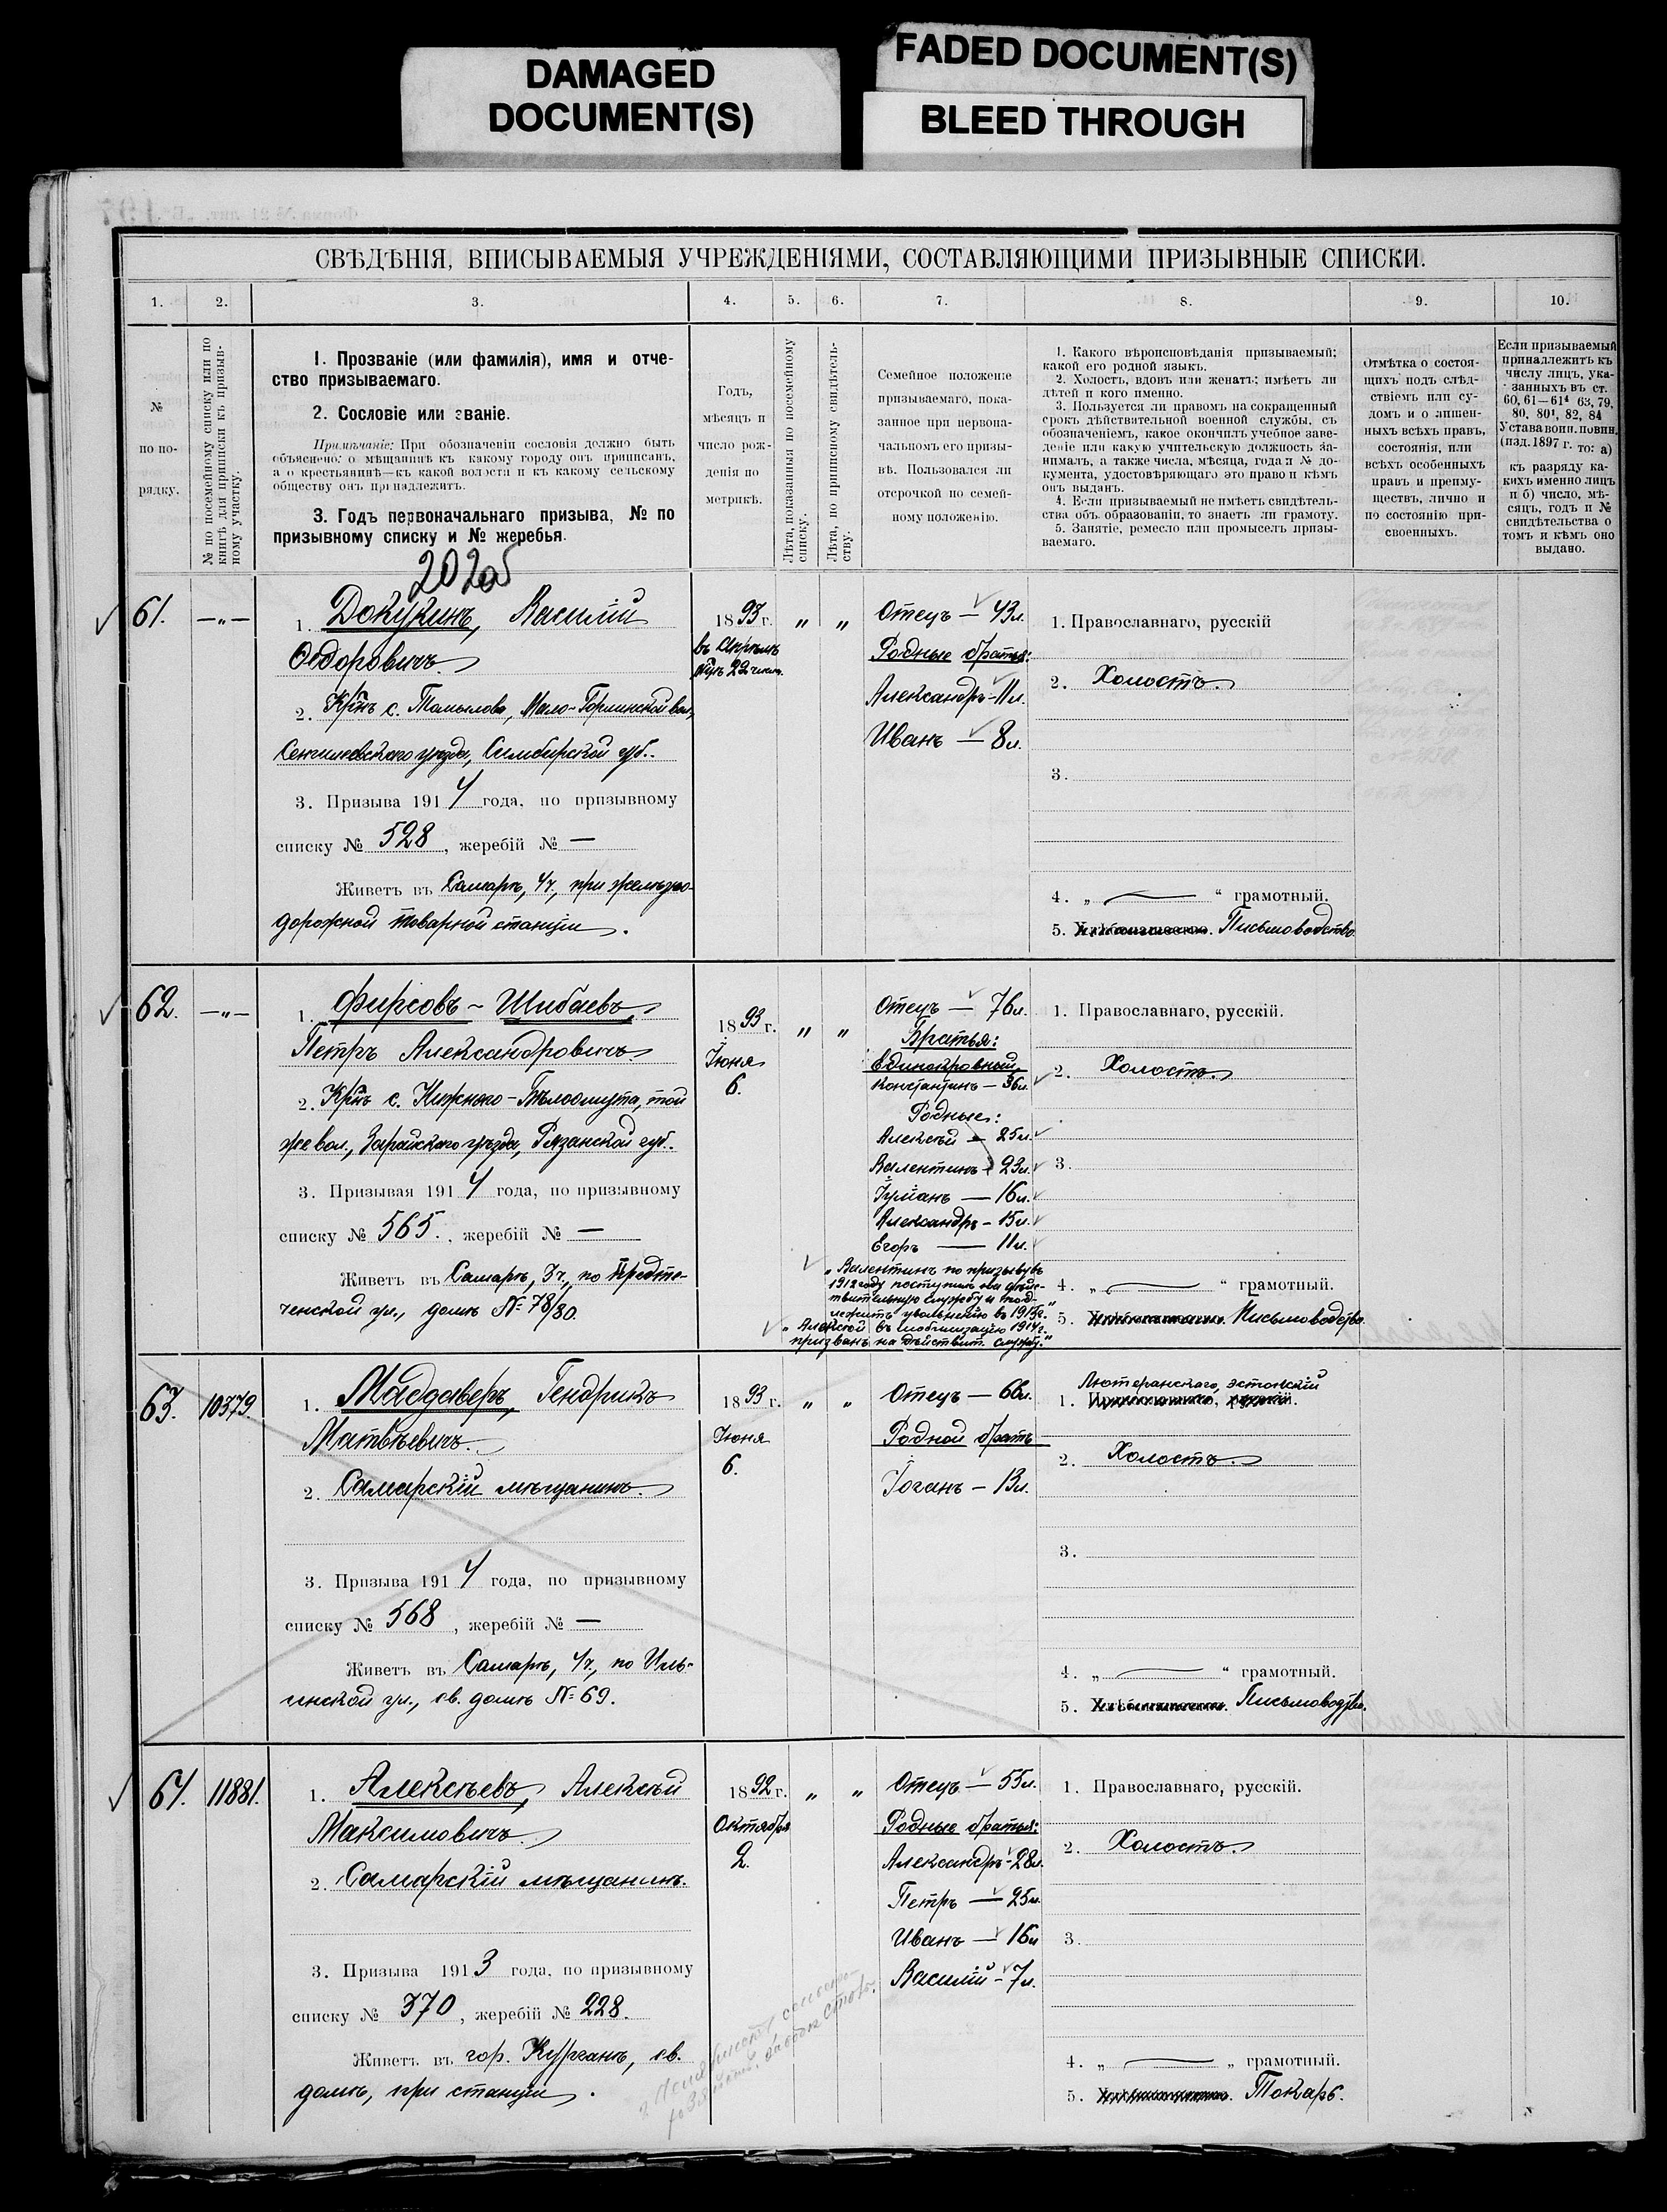 DAMAGED
DOCUMENT(S)
FADED DOCUMENT(S)
BLEED THROUGH
СВѢДѢНІЯ, ВПИСЫВАЕМЫЯ УЧРЕЖДЕНІЯМИ, СОСТАВЛЯЮЩИМИ ПРИЗЫВНЫЕ СПИСКИ.
1. 2. 3. 4. 5. 6. 7. 8. 9. 10.
№
по по-
рядку.
№ по посемейному списку или по
книгѣ для приписки къ призыв-
ному участку.
1. Прозваніе (или фамилія), имя и отче-
ство призываемаго.
2. Сословіе или званіе.
Примѣчаніе: При обозначеніи сословія должно быть
объяснено: о мѣщанинѣ къ какому городу онъ приписанъ,
а о крестьянинѣ—къ какой волости и къ какому сельскому
обществу онъ принадлежитъ.
3. Годъ первоначальнаго призыва, № по
призывному списку и № жеребья.
Годъ,
мѣсяцъ и
число рож-
денія по
метрикѣ.
Лѣта, показанныя по посемейному
списку.
Лѣта, по приписному свидѣтель-
ству.
Семейное положеніе
призываемаго, пока-
занное при первона-
чальномъ его призы-
вѣ. Пользовался ли
отсрочкой по семей-
ному положенію.
1. Какого вѣроисповѣданія призываемый;
какой его родной языкъ.
2. Холостъ, вдовъ или женатъ; имѣетъ ли
дѣтей и кого именно.
3. Пользуется ли правомъ на сокращенный
срокъ дѣйствительной военной службы, съ
обозначеніемъ, какое окончилъ учебное заве-
деніе или какую учительскую должность за-
нималъ, а также числа, мѣсяца, года и № до-
кумента, удостовѣряющаго это право и кѣмъ
онъ выданъ.
4. Если призываемый не имѣетъ свидѣтель-
ства объ образованіи, то знаетъ ли грамоту.
5. Занятіе, ремесло или промыселъ призы-
ваемаго.
Отмѣтка о состоя-
щихъ подъ слѣд-
ствіемъ или су-
домъ и о лишен-
ныхъ всѣхъ правъ,
состоянія, или
всѣхъ особенныхъ
правъ и преиму-
ществъ, лично и
по состоянію при-
своенныхъ.
Если призываемый
принадлежитъ къ
числу лицъ, ука-
занныхъ въ ст.
60, 61—61⁴ 63, 79,
80, 80¹, 82, 84
Устава воин. повин.
(изд. 1897 г. то: а)
къ разряду ка-
кихъ именно лицъ
и б) число, мѣ-
сяцъ, годъ и №
свидѣтельства о
томъ и кѣмъ оно
выдано.
61. —„—
1. Докукинъ, Василій
Ѳедоровичъ
2. Кр̃нъ с. Томылова,
Сенгилеевскаго уѣзда, Симбирской губ.
3. Призыва 1914 года, по призывному
списку № 528, жеребій № —
Живетъ въ Самарѣ, 4ч., при желѣзно-
дорожной товарной станціи.
1893 г.
„ „
Отецъ — 43л.
Родные братья:
Александръ — 11л.
Иванъ — 8л.
1. Православнаго, русскій
2. Холостъ.
3.
4. „ — “ грамотный.
5. Хлѣбопашество. Письмоводство.
62. —„—
1. Фирсовъ - Шибаевъ,
Петръ Александровичъ
2. Кр̃нъ с. Нижняго-Бѣлоомута, той
же вол., Зарайскаго уѣзда, Рязанской губ.
3. Призывая 1914 года, по призывному
списку № 565., жеребій № —
Живетъ въ Самарѣ, 3ч., по Предте-
ченской ул., домъ № 78/80.
1893 г.
Іюня
6.
„ „
Отецъ — 76л.
Братья:
Единокровный
Константинъ — 36л.
Родные:
Алексѣй — 25л.
Валентинъ — 23л.
Іуліанъ — 16л.
Александръ — 15л.
Егоръ — 11л.
„Валентинъ по призыву въ
1912 году поступилъ на дѣйс-
твительную службу и под-
лежитъ увольненію въ 1915г.“
„Алексѣй въ мобилизацію 1914г.
призванъ на дѣйствит. службу.“
1. Православнаго, русскій.
2. Холостъ.
3.
4. „ — “ грамотный.
5. Хлѣбопашество. Письмоводство.
63. 10379.
1. Маддаверъ, Гендрикъ
Матвѣевичъ.
2. Самарскій мѣщанинъ.
3. Призыва 1914 года, по призывному
списку № 568, жеребій № —
Живетъ въ Самарѣ, 4ч., по Иль-
инской ул., св. домъ № 69.
1893 г.
Іюня
6.
„ „
Отецъ — 66л.
Родной братъ
Іоганъ — 13л.
Лютеранскаго, эстонскій
1. Православнаго, русскій.
2. Холостъ.
3.
4. „ — “ грамотный.
5. Хлѣбопашество. Письмоводство.
64. 11881.
1. Алексѣевъ, Алексѣй
Максимовичъ.
2. Самарскій мѣщанинъ.
3. Призыва 1913 года, по призывному
списку № 370, жеребій № 228.
Живетъ въ гор. Курганѣ, св.
домъ, при станціи.
1892 г.
Октября
2.
„ „
Отецъ — 55л.
Родные братья:
Александръ — 28л.
Петръ — 25л.
Иванъ — 16л
Василій — 7л.
1. Православнаго, русскій.
2. Холостъ.
3.
4. „ — „ грамотный.
5. Хлѣбопашество. Токарь.